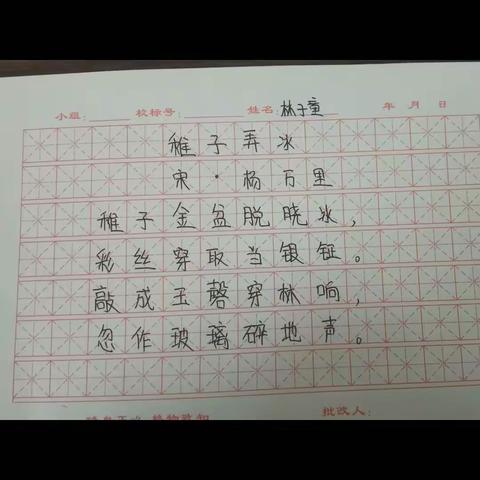 小组: 校标号: 姓名: 林子童 年 月 日
稚子弄冰
宋·杨万里
稚子金盆脱晓冰，
彩丝穿取当银钲。
敲成玉磬穿林响，
忽作玻璃碎地声。
批改人: